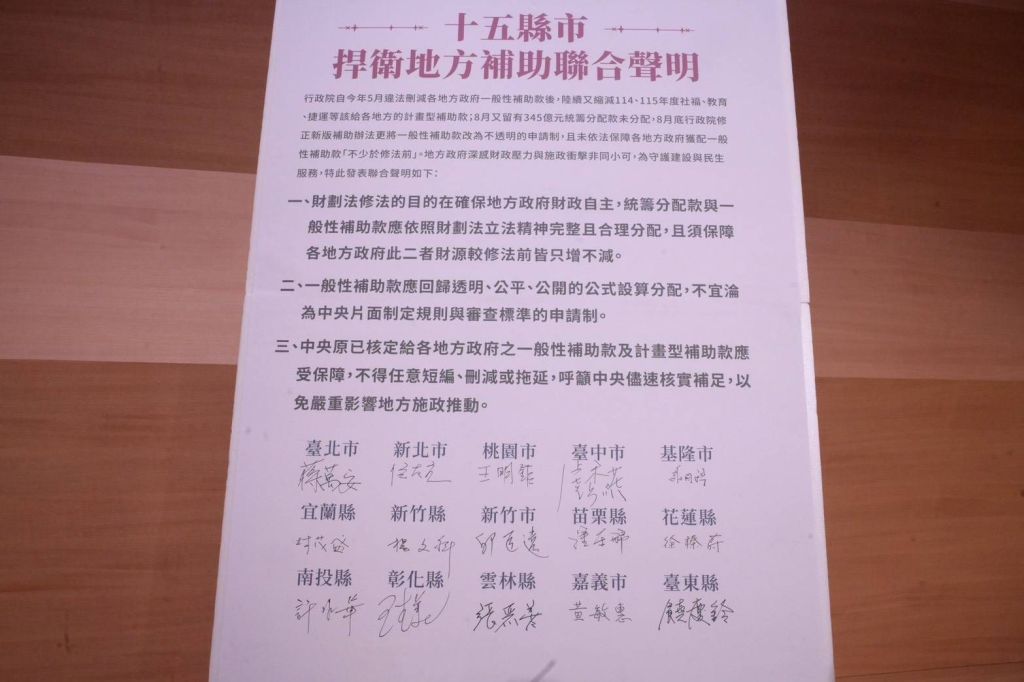 十五縣市
捍衛地方補助聯合聲明
行政院自今年5月違法刪減各地方政府一般性補助款後，陸續又縮減114、115年度社福、教育
、捷運等該給各地方的計畫型補助款；8月又留有345億元統籌分配款未分配，8月底行政院修
正新版補助辦法更將一般性補助款改為不透明的申請制，且未依法保障各地方政府獲配一般
性補助款「不少於修法前」。地方政府深感財政壓力與施政衝擊非同小可，為守護建設與民生
服務，特此發表聯合聲明如下：
一、財劃法修法的目的在確保地方政府財政自主，統籌分配款與一
般性補助款應依照財劃法立法精神完整且合理分配，且須保障
各地方政府此二者財源較修法前皆只增不減。
二、一般性補助款應回歸透明、公平、公開的公式設算分配，不宜淪
為中央片面制定規則與審查標準的申請制。
三、中央原已核定給各地方政府之一般性補助款及計畫型補助款應
受保障，不得任意短編、刪減或拖延，呼籲中央儘速核實補足，以
免嚴重影響地方施政推動。
臺北市 新北市 桃園市 臺中市 基隆市
蔣萬安
宜蘭縣 新竹縣 新竹市 苗栗縣 花蓮縣
林茂盛 楊文科 邱臣遠 徐榛蔚
南投縣 彰化縣 雲林縣 嘉義市 臺東縣
許淑華 王惠美 張麗善 黃敏惠 饒慶鈴